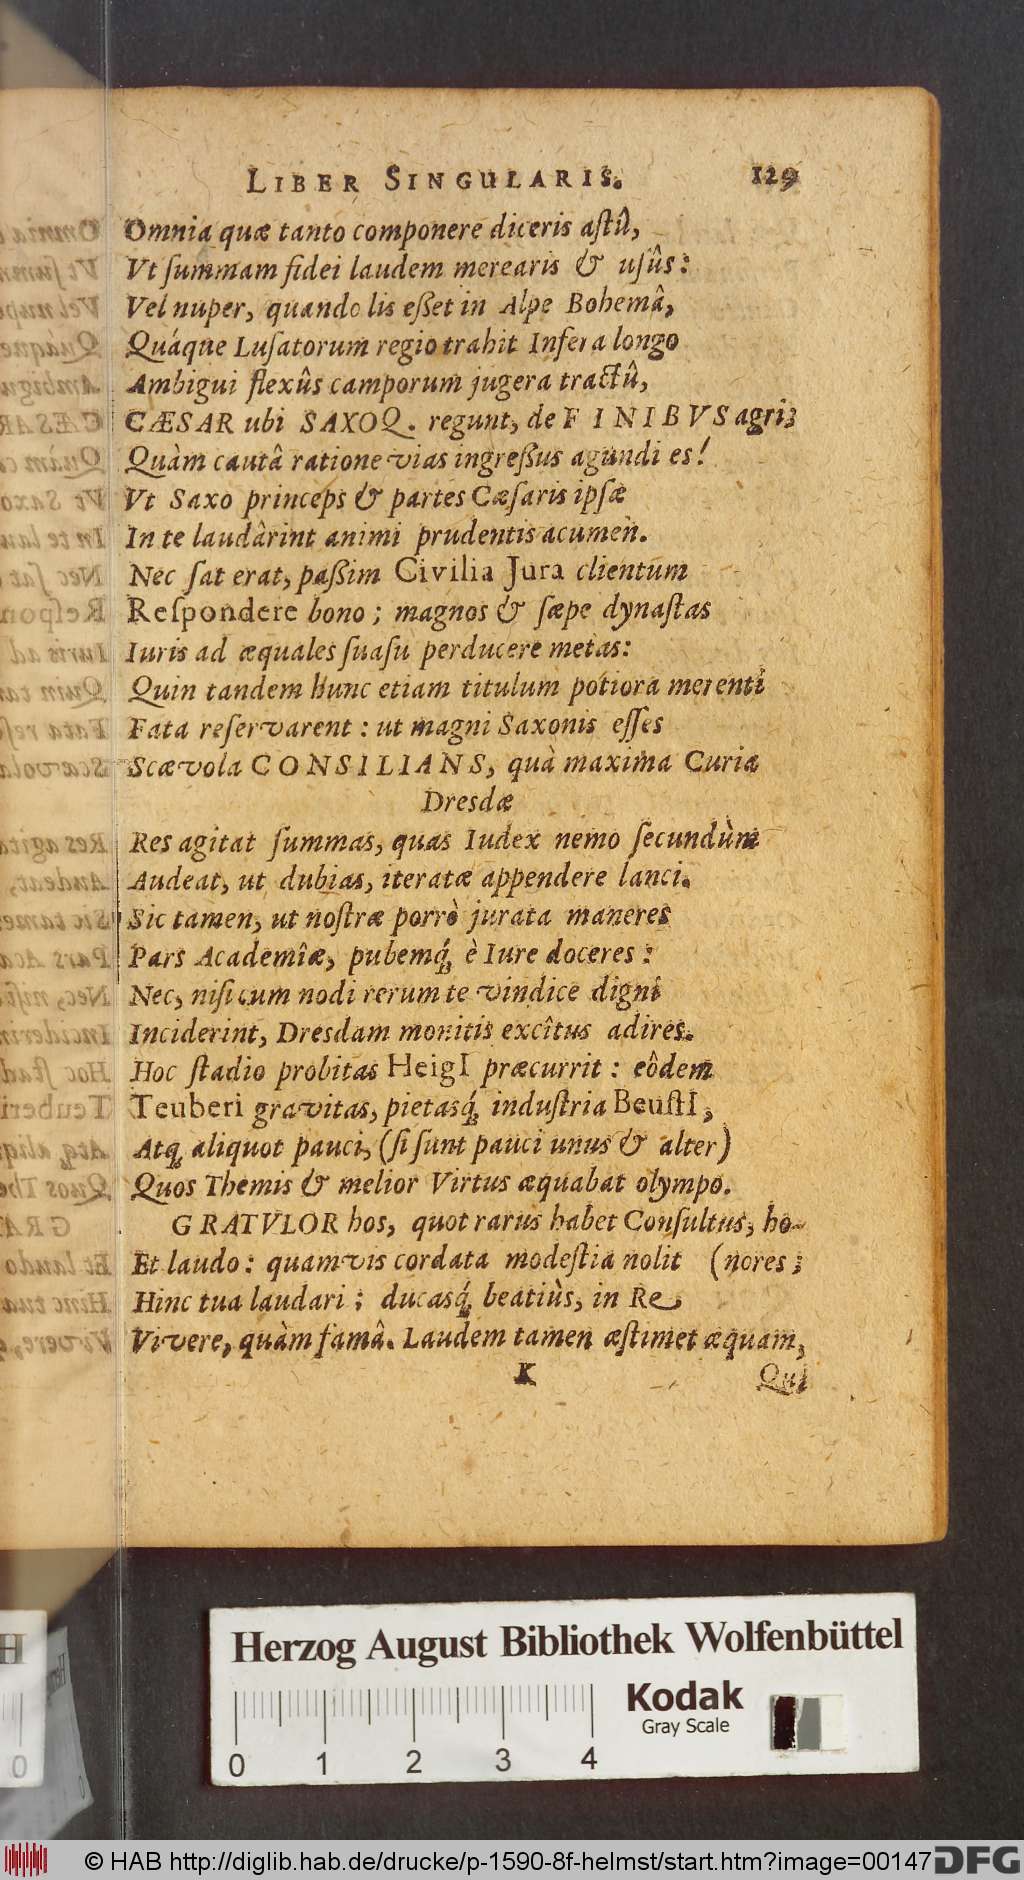 LIBER SINGULARIS. 129
Omnia quæ tanto componere diceris aſtû,
Vt ſummam fidei laudem merearis & uſûs:
Vel nuper, quando lis eßet in Alpe Bohemâ,
Quáque Luſatorum regio trahit Infera longo
Ambigui flexûs camporum jugera tractû,
CÆSAR ubi SAXOQ. regunt, de FINIBVS agri;
Quàm cautâ ratione vias ingreßus agundi es!
Vt Saxo princeps & partes Cæſaris ipſæ
In te laudârint animi prudentis acumen.
Nec ſat erat, paßim Civilia Jura clientum
Reſpondere bono; magnos & ſæpe dynaſtas
Iuris ad æquales ſuaſu perducere metas:
Quin tandem hunc etiam titulum potiora merenti
Fata reſervarent: ut magni Saxonis eſſes
Scævola CONSILIANS, quà maxima Curia
Dresdæ
Res agitat ſummas, quas Iudex nemo ſecundùm
Audeat, ut dubias, iteratæ appendere lanci.
Sic tamen, ut noſtræ porrò jurata maneres
Pars Academîæ, pubemq́; è Iure doceres:
Nec, niſi cum nodi rerum te vindice digni
Inciderint, Dresdam monitis excîtus adires.
Hoc ſtadio probitas HeigI præcurrit: eôdem
Teuberi gravitas, pietasq́; induſtria BeuſtI,
Atq; aliquot pauci, (ſi ſunt pauci unus & alter)
Quos Themis & melior Virtus æquabat olympo.
GRATVLOR hos, quot rarus habet Conſultus, ho-
Et laudo: quamvis cordata modeſtia nolit (nores;
Hinc tua laudari; ducasq́; beatiùs, in Re
Vivere, quàm famâ. Laudem tamen æſtimet æquam,
K Qui
Herzog August Bibliothek Wolfenbüttel
Kodak
Gray Scale
0 1 2 3 4
© HAB http://diglib.hab.de/drucke/p-1590-8f-helmst/start.htm?image=00147 DFG